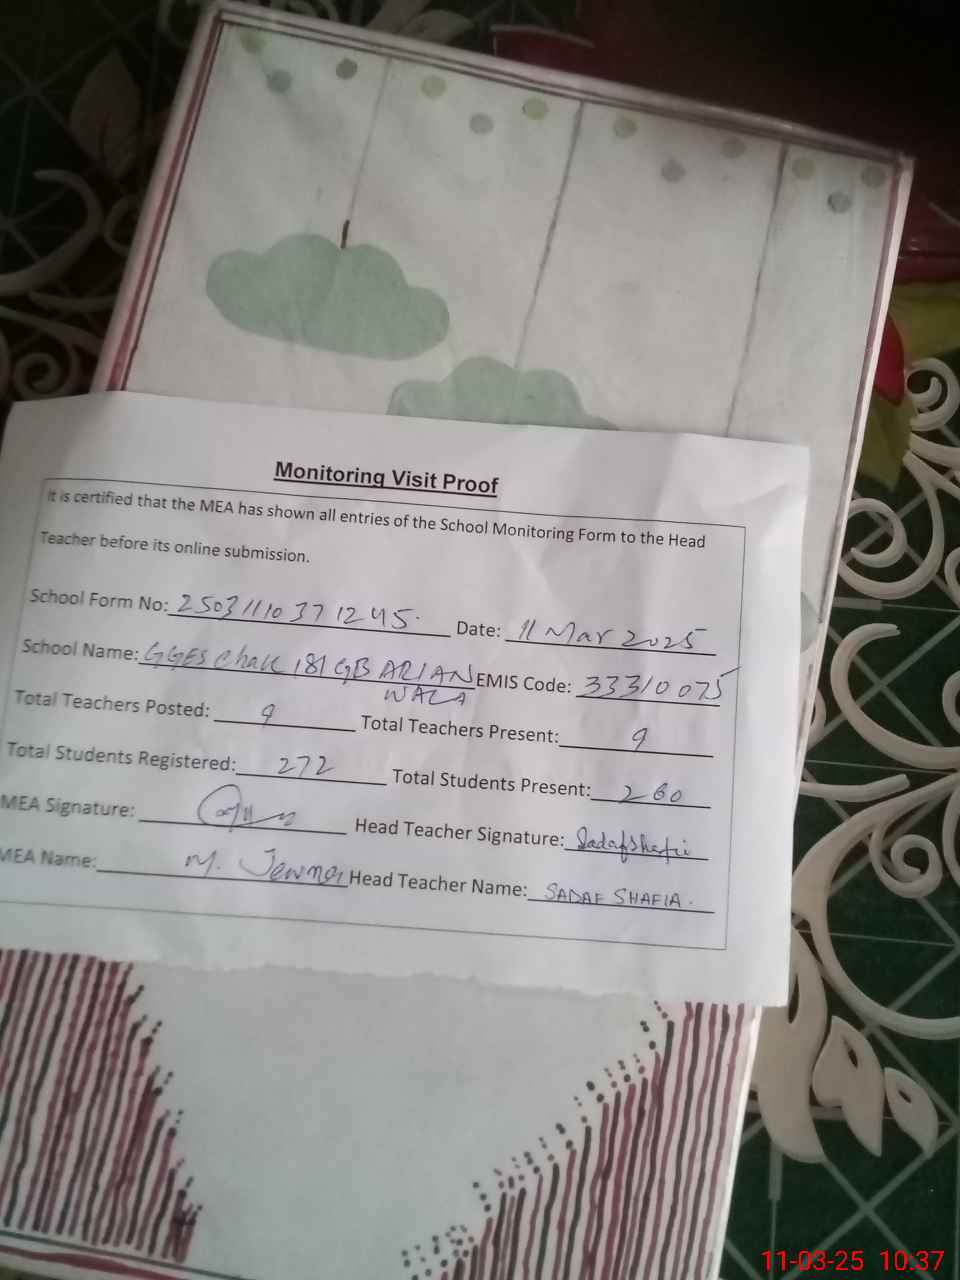 Monitoring Visit Proof
It is certified that the MEA has shown all entries of the School Monitoring Form to the Head
Teacher before its online submission.
School Form No: 25031110371245. Date: 11 Mar 2025
School Name: GGES Chak 181 GB ARIAN WALA EMIS Code: 33310075
Total Teachers Posted: 9 Total Teachers Present: 9
Total Students Registered: 272 Total Students Present: 260
MEA Signature: Head Teacher Signature: Sadaf Shafia
MEA Name: M. Head Teacher Name: SADAF SHAFIA.
11-03-25 10:37